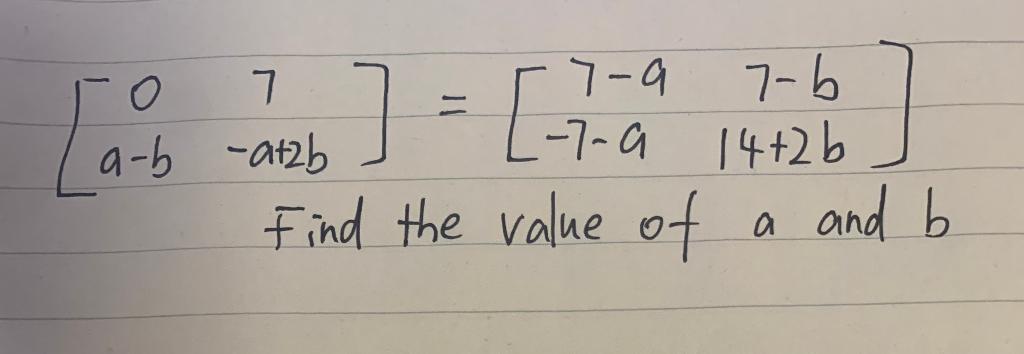 [0 7] = [7-a 7-b]
[a-b -a+2b] [-7-a 14+2b]
Find the value of a and b